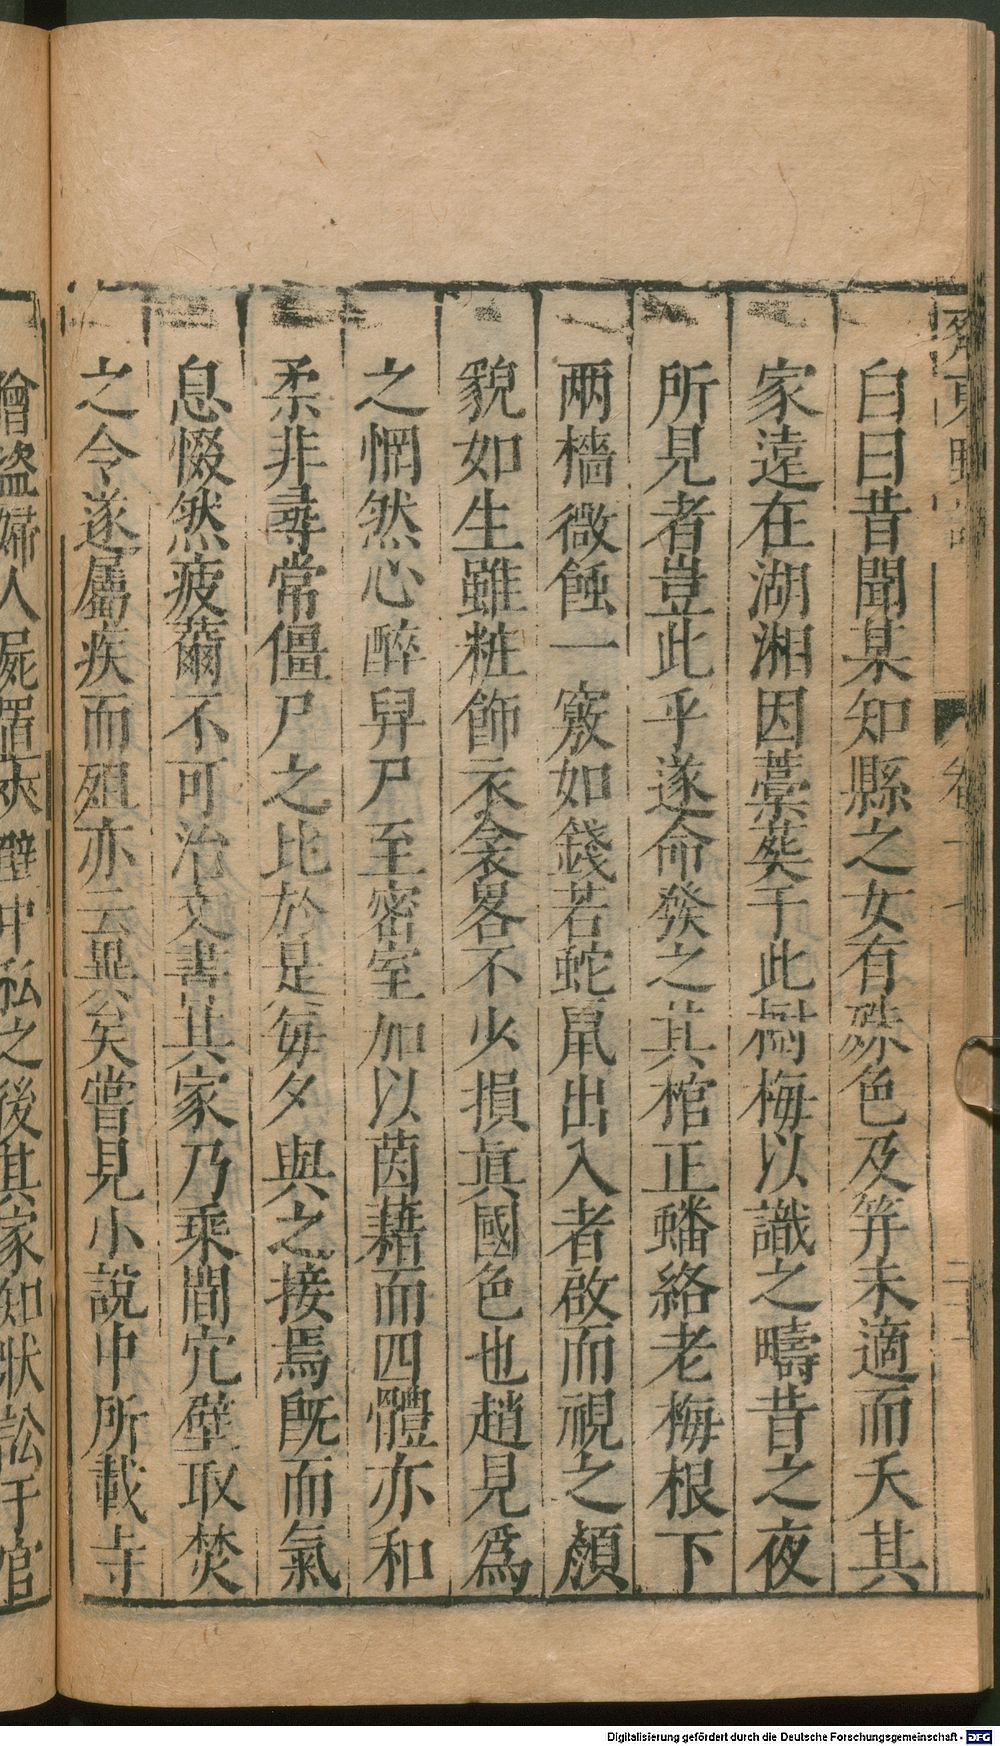 白曰昔聞某知縣之女有殊色及笄未適而夭其
家遠在湖湘因藁葬于此樹梅以識之疇昔之夜
所見者豈此乎遂命發之其棺正蟠絡老梅根下
兩檣微蝕一竅如錢若蛇鼠出入者啟而視之顏
貌如生雖粧飾衣衾畧不少損眞國色也趙見爲
之惘然心醉舁尸至密室加以茵藉而四體亦和
柔非尋常僵尸之比於是每夕與之接焉旣而氣
息惙然疲薾不可治文書其家乃乘間穴壁取焚
之令遂屬疾而殂亦云異矣嘗見小說中所載寺
僧盜婦人屍置夾壁中私之後其家知狀訟于官
Digitalisierung gefördert durch die Deutsche Forschungsgemeinschaft - DFG